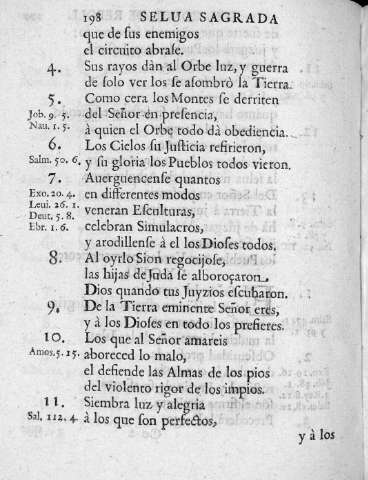 198 SELUA SAGRADA
que de ſus enemigos
el circuito abraſe.
4. Sus rayos dàn al Orbe luz, y guerra
de ſolo ver los ſe aſombrò la Tierra.
5. Como cera los Montes ſe derriten
Job. 9. 5. del Señor en preſencia,
Nau. 1. 5. à quien el Orbe todo dà obediencia.
6. Los Cielos ſu Juſticia refirieron,
Salm. 50. 6. y ſu gloria los Pueblos todos vieron.
7. Auerguencenſe quantos
Exo. 20. 4. en differentes modos
Leui. 26. 1. veneran Eſculturas,
Deut. 5. 8. celebran Simulacros,
Ebr. 1. 6. y arodillenſe à el los Dioſes todos.
8. Al oyrlo Sion regocijoſe,
las hijas de Juda ſe alboroçaron
Dios quando tus Juyzios eſcubaron.
9. De la Tierra eminente Señor eres,
y à los Dioſes en todo los prefieres.
10. Los que al Señor amareis
Amos. 5. 15. aboreced lo malo,
el defiende las Almas de los pios
del violento rigor de los impios.
11. Siembra luz y alegria
Sal. 112. 4 à los que ſon perfectos,
y à los